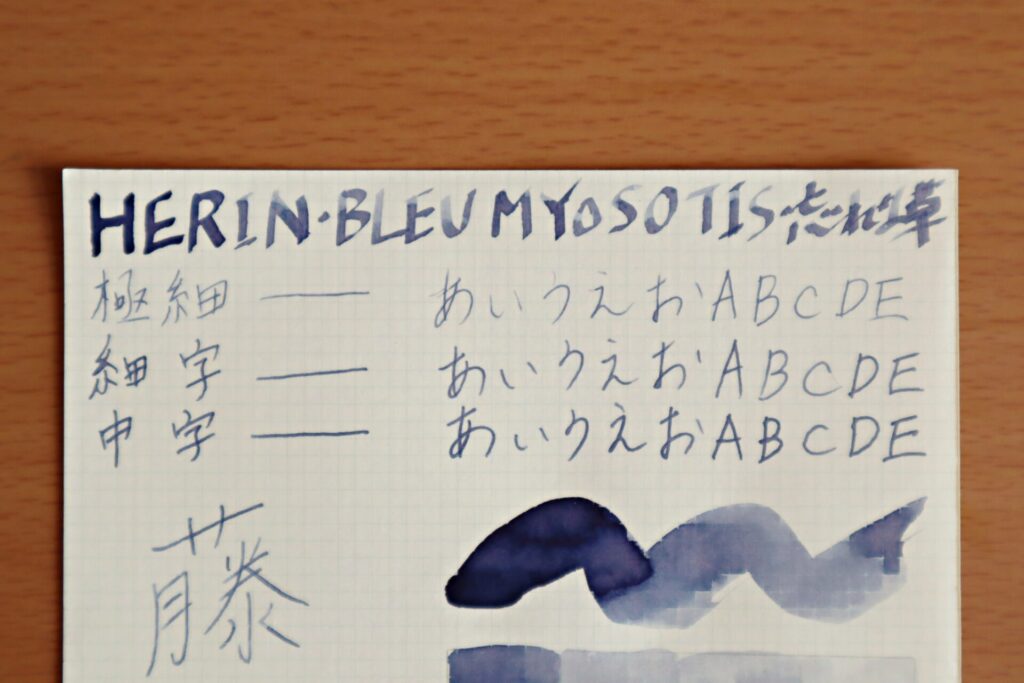 HERIN・BLEU MYOSOTIS・忘れな草
極細 — あいうえおABCDE
細字 — あいうえおABCDE
中字 — あいうえおABCDE
藤